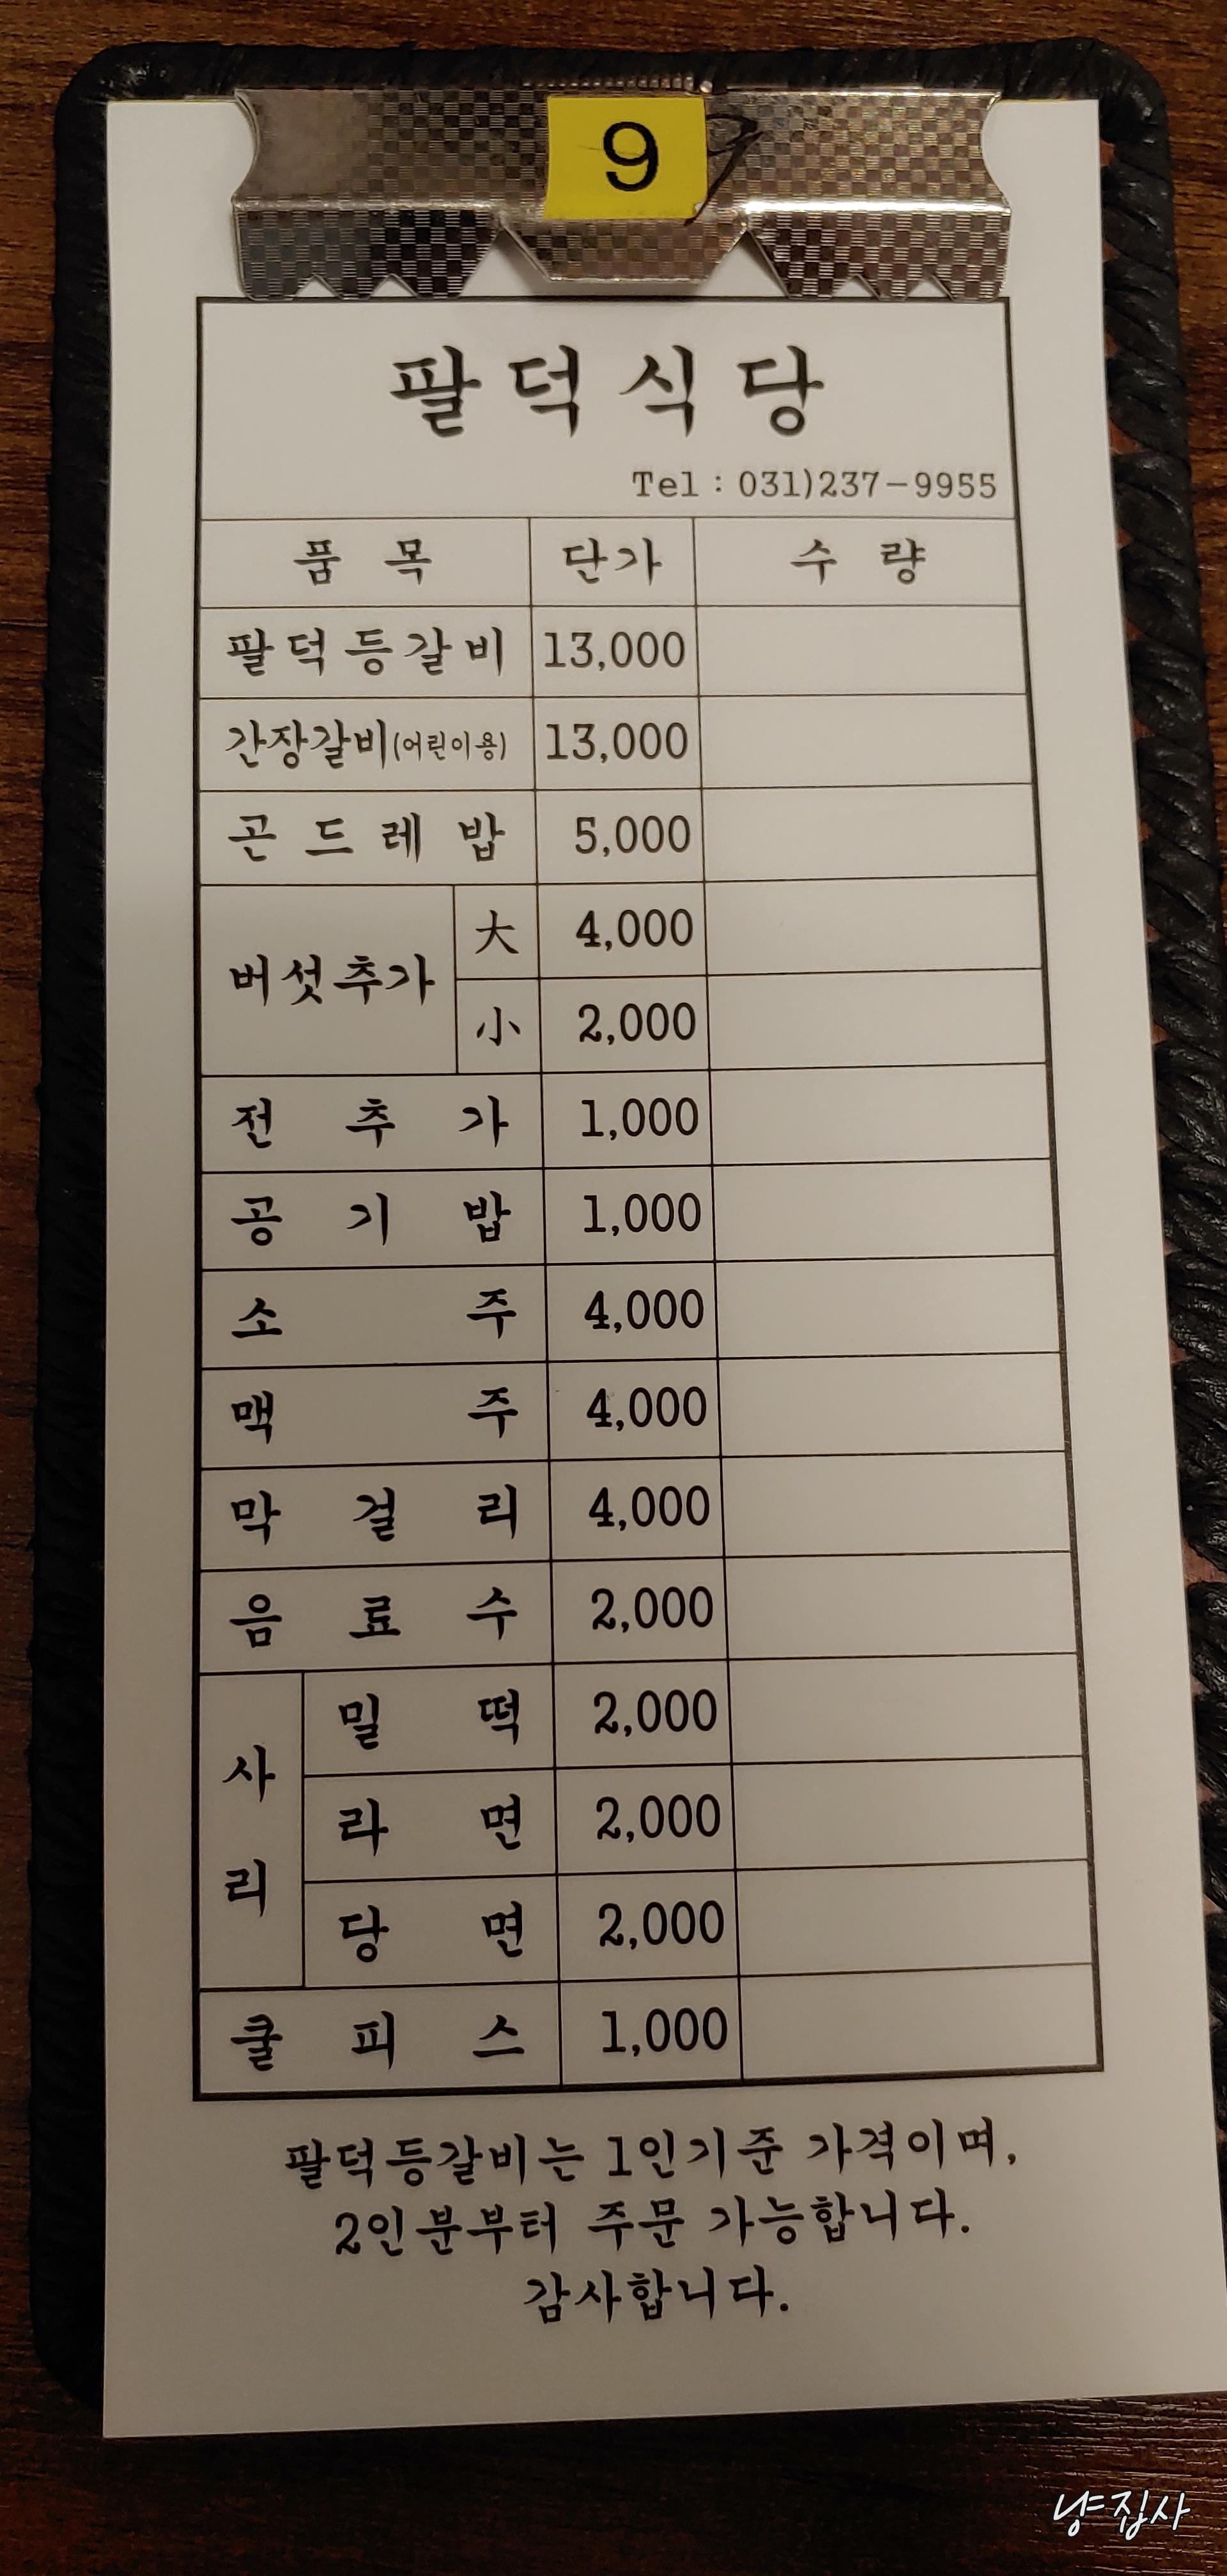 9
팔덕식당
Tel : 031)237-9955
품 목 단가 수 량
팔덕등갈비 13,000
간장갈비(어린이용) 13,000
곤드레밥 5,000
버섯추가 大 4,000
小 2,000
전 추 가 1,000
공 기 밥 1,000
소 주 4,000
맥 주 4,000
막 걸 리 4,000
음 료 수 2,000
사리 밀 떡 2,000
라 면 2,000
당 면 2,000
쿨 피 스 1,000
팔덕등갈비는 1인기준 가격이며,
2인분부터 주문 가능합니다.
감사합니다.
냥집사